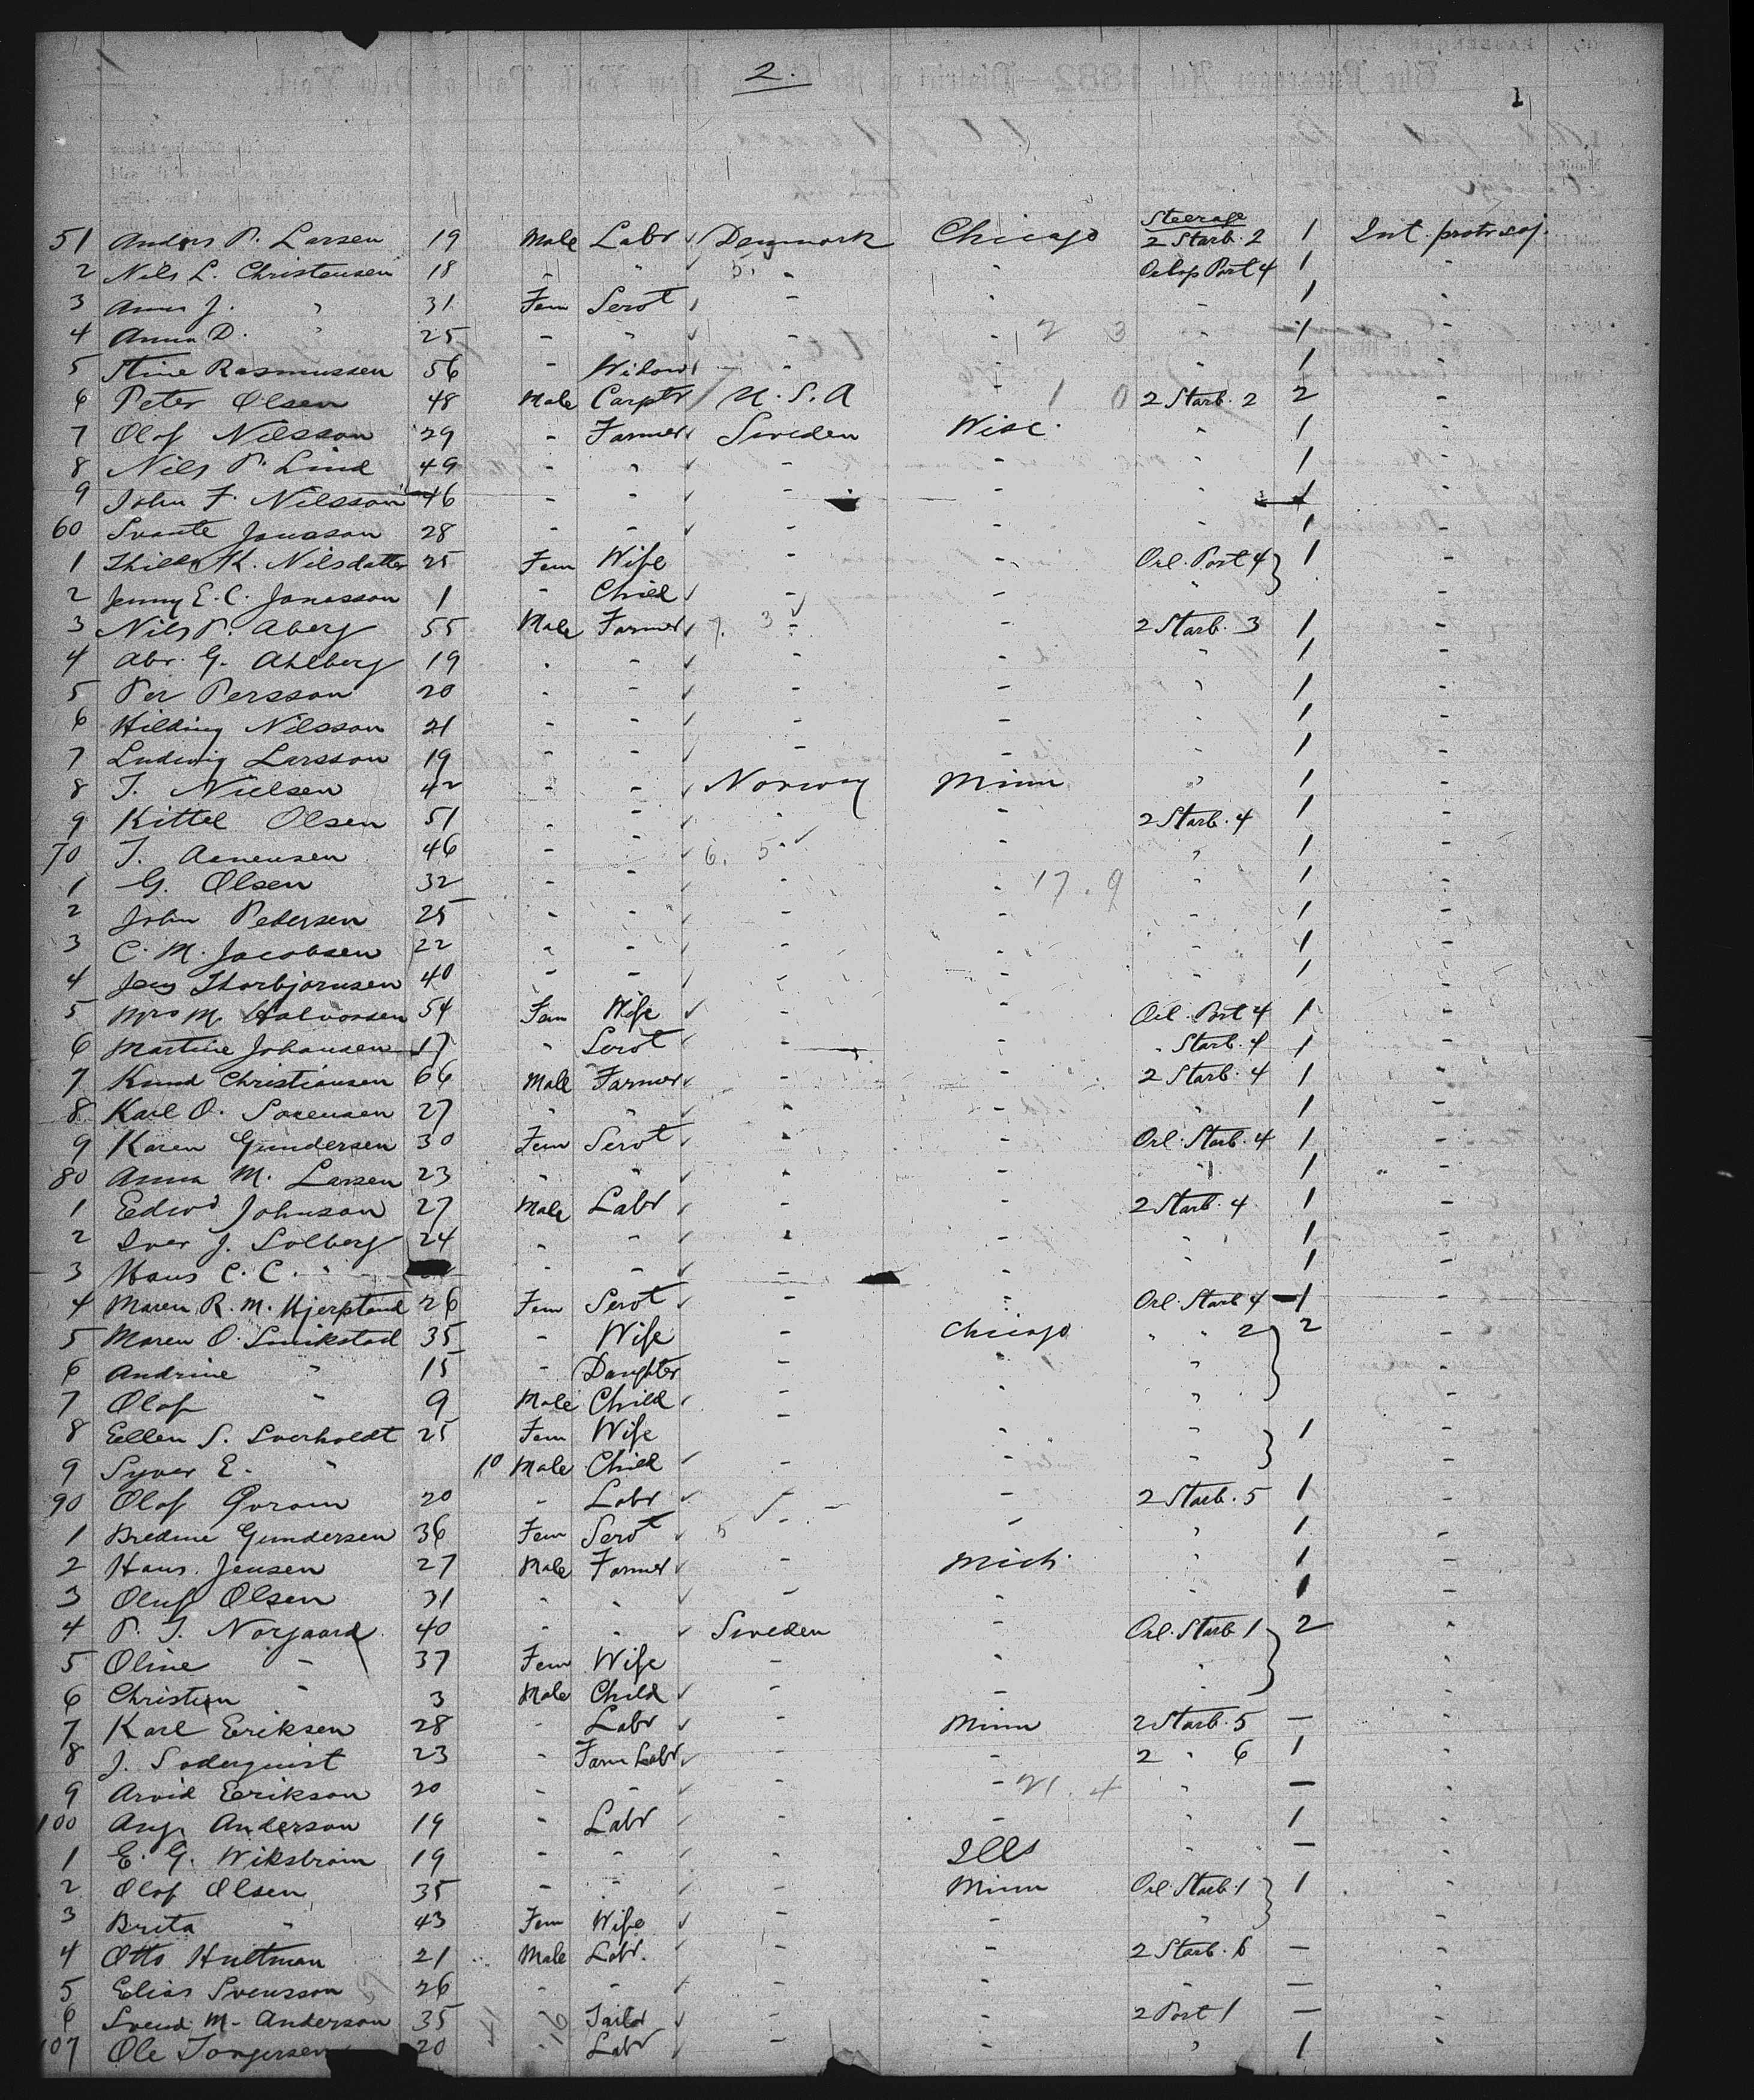 2.
1
Steerage
51 Anders P. Larsen 19 Male Labr Denmark Chicago 2 Starb. 2 1 Int. protr soj.
2 Nils L. Christensen 18 " " " " Orlop Port 4 1 "
3 Anna J. " 31 Fem Servt " " " 1 "
4 Anna D. " 25 " " " " " 1 "
5 Stine Rasmussen 56 " Widow " " " 1 "
6 Peter Olsen 48 Male Carptr U.S.A " 2 Starb. 2 2 "
7 Olof Nilsson 29 " Farmer Sweden Wisc. " 1 "
8 Nils P. Lind 49 " " " " " 1 "
9 John F. Nilsson 46 " " " " " 1
60 Svante Jonasson 28 " " " " " 1 "
1 K. Nilsdatter 25 Fem Wife " " Orl. Port 4 1 "
2 Jenny E. C. Jonasson 1 " Child " " " "
3 Nils P. Aberg 55 Male Farmer " " 2 Starb. 3 1 "
4 Abr. G. Ahlberg 19 " " " " " 1 "
5 Per Persson 20 " " " " " 1 "
6 Hilding Nilsson 21 " " " " " 1 "
7 Ludwig Larsson 19 " " " " " 1 "
8 T. Nielsen 42 " " Norway Minn " 1 "
9 Kittel Olsen 51 " " " " 2 Starb. 4 1 "
70 T. Aanensen 46 " " " " " 1 "
1 G. Olsen 32 " " " " " 1 "
2 John Pedersen 25 " " " " " 1 "
3 C. M. Jacobsen 22 " " " " " 1 "
4 Jens Thorbjornsen 40 " " " " " 1 "
5 Mrs M. Halvorsen 54 Fem Wife " " Orl. Port 4 1 "
6 Martine Johansen 17 " Servt " " " Starb. 4 1 "
7 Knud Christiansen 66 Male Farmer " " 2 Starb. 4 1 "
8 Karl O. Sorensen 27 " " " " " 1 "
9 Karen Gundersen 30 Fem Servt " " Orl. Starb. 4 1 "
80 Anna M. Larsen 23 " " " " " 1 "
1 Edwd Johnson 27 Male Labr " " 2 Starb. 4 1 "
2 Iver J. Solberg 24 " " " " " 1 "
3 Hans C. C. " " " " " " 1 "
4 Maren R. M. 26 Fem Servt " " Orl. Starb 4 1 "
5 Maren O. 35 " Wife " Chicago " " 2 2 "
6 Andrine " 15 " Daughter " " " "
7 Olaf " 9 Male Child " " " "
8 Ellen S. Soerholdt 25 Fem Wife " " " 1 "
9 Syver E. " 10 Male Child " " " "
90 Olaf 20 " Labr " " 2 Starb. 5 1 "
1 Bredine Gundersen 36 Fem Servt " " " 1 "
2 Hans Jensen 27 Male Farmer " Mich. " 1 "
3 Oluf Olsen 31 " " " " " 1 "
4 P. T. Norgaard 40 " " Sweden " Orl. Starb 1 2 "
5 Oline " 37 Fem Wife " " " "
6 Christian " 3 Male Child " " " "
7 Karl Eriksen 28 " Labr " Minn 2 Starb. 5 — "
8 J. Soderquist 23 " Farm Labr " " 2 " 6 1 "
9 Arvid Erikson 20 " " " " " — "
100 Aug. Anderson 19 " Labr " " " 1 "
1 E. G. Wikstrom 19 " " " Ills " — "
2 Olof Olsen 35 " " " Minn Orl. Starb. 1 1 "
3 Brita " 43 Fem Wife " " " "
4 Otto Hultman 21 Male Labr. " " 2 Starb. 6 — "
5 Elias Svensson 26 " " " " " — "
6 Svend M. Anderson 35 " Tailor " " 2 Port 1 — "
107 Ole Torgersen 20 " Labr " " " 1 "